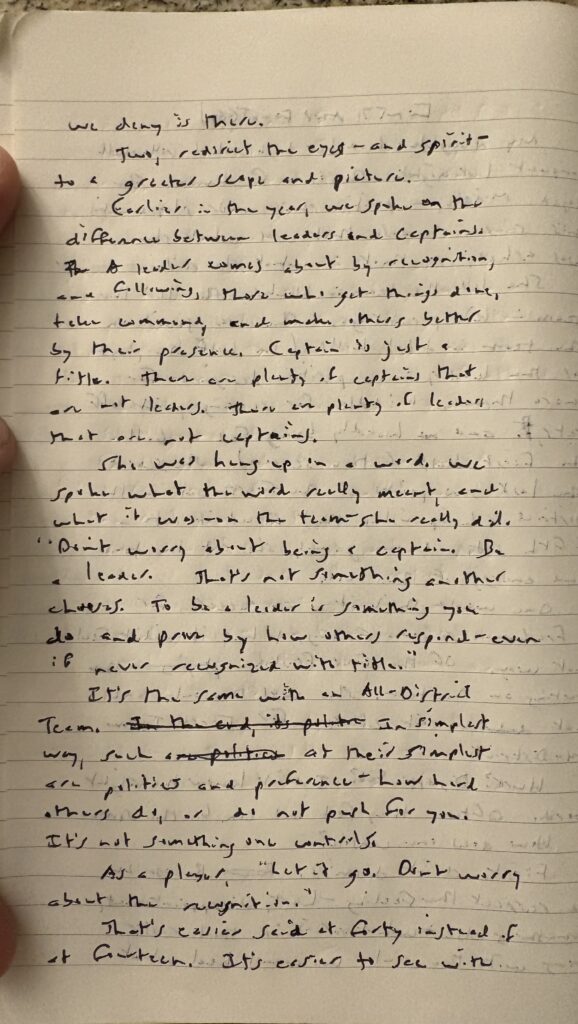 we deny is there.
Two, redirect the eyes – and spirit –
to a greater scape and picture.
Earlier in the year, we spoke on the
difference between leaders and captains.
A leader comes about by recognition,
and following, those who get things done,
take command, and make others better
by their presence. Captain is just a
title. There are plenty of captains that
are not leaders. There are plenty of leaders
that are not captains.
She was hung up on a word. We
spoke what the word really meant, and
what it was – on the team – she really did.
"Don't worry about being a captain. Be
a leader. That's not something another
chooses. To be a leader is something you
do and prove by how others respond – even
if never recognized with title."
It's the same with an All-District
Team. In the end, its politic In simplest
way, such are politics at their simplest
are politics and preference – how hard
others do, or do not push for you.
It's not something one controls.
As a player, "Let it go. Don't worry
about the recognition."
That's easier said at forty instead of
at fourteen. It's easier to see with